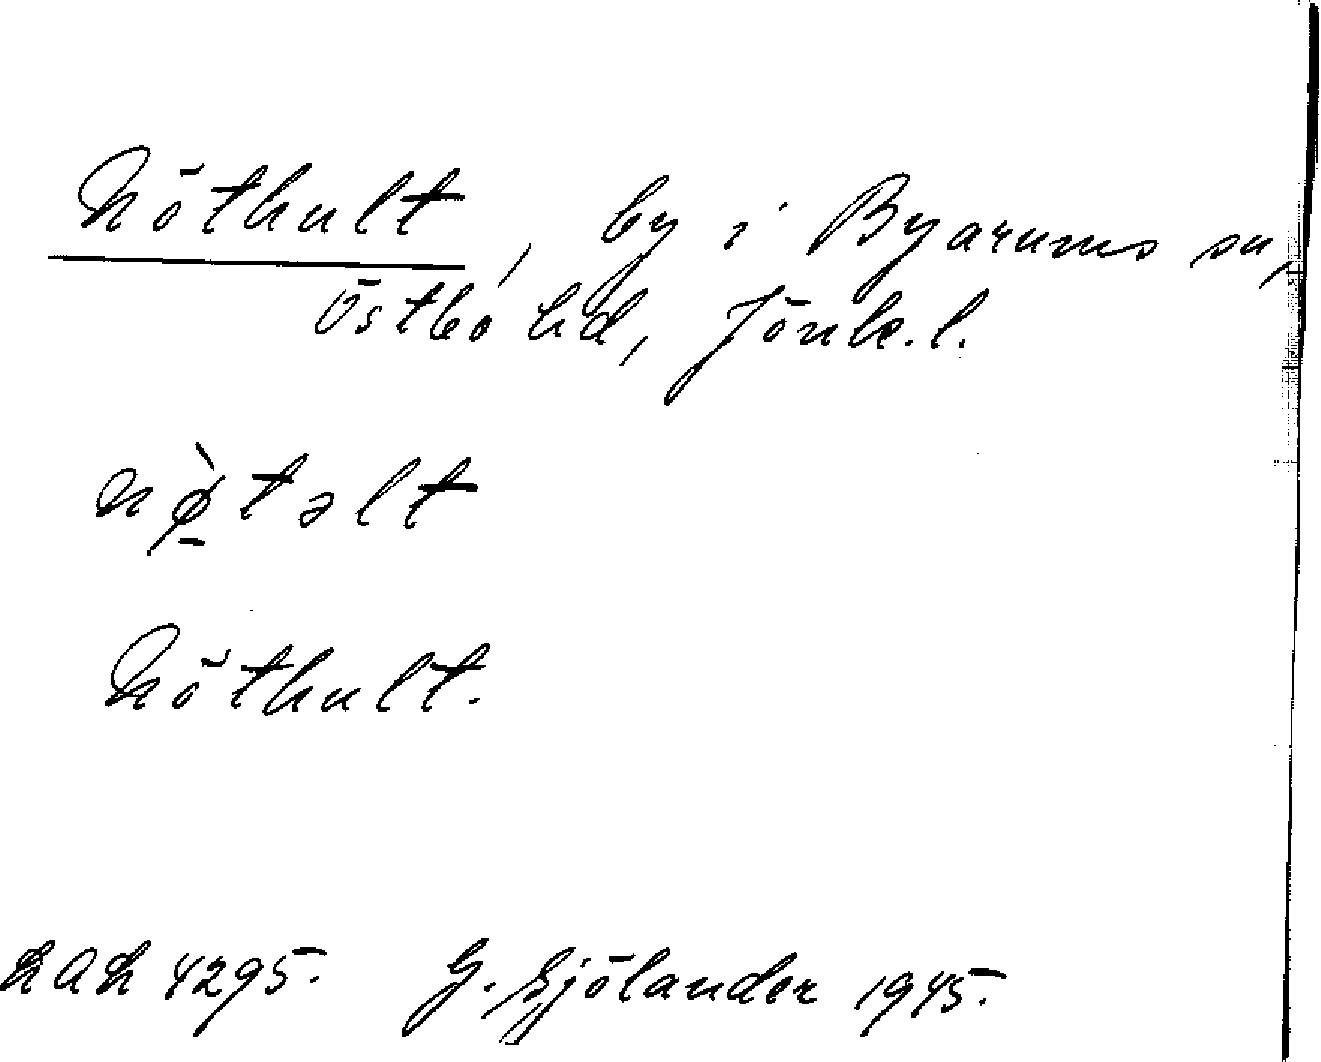 Nöthult, by i Byarums sn,
Östbo hd, Jönk.l.
nø̱̀təlt
Nöthult.
LAL 4295. G. Sjölander 1945.